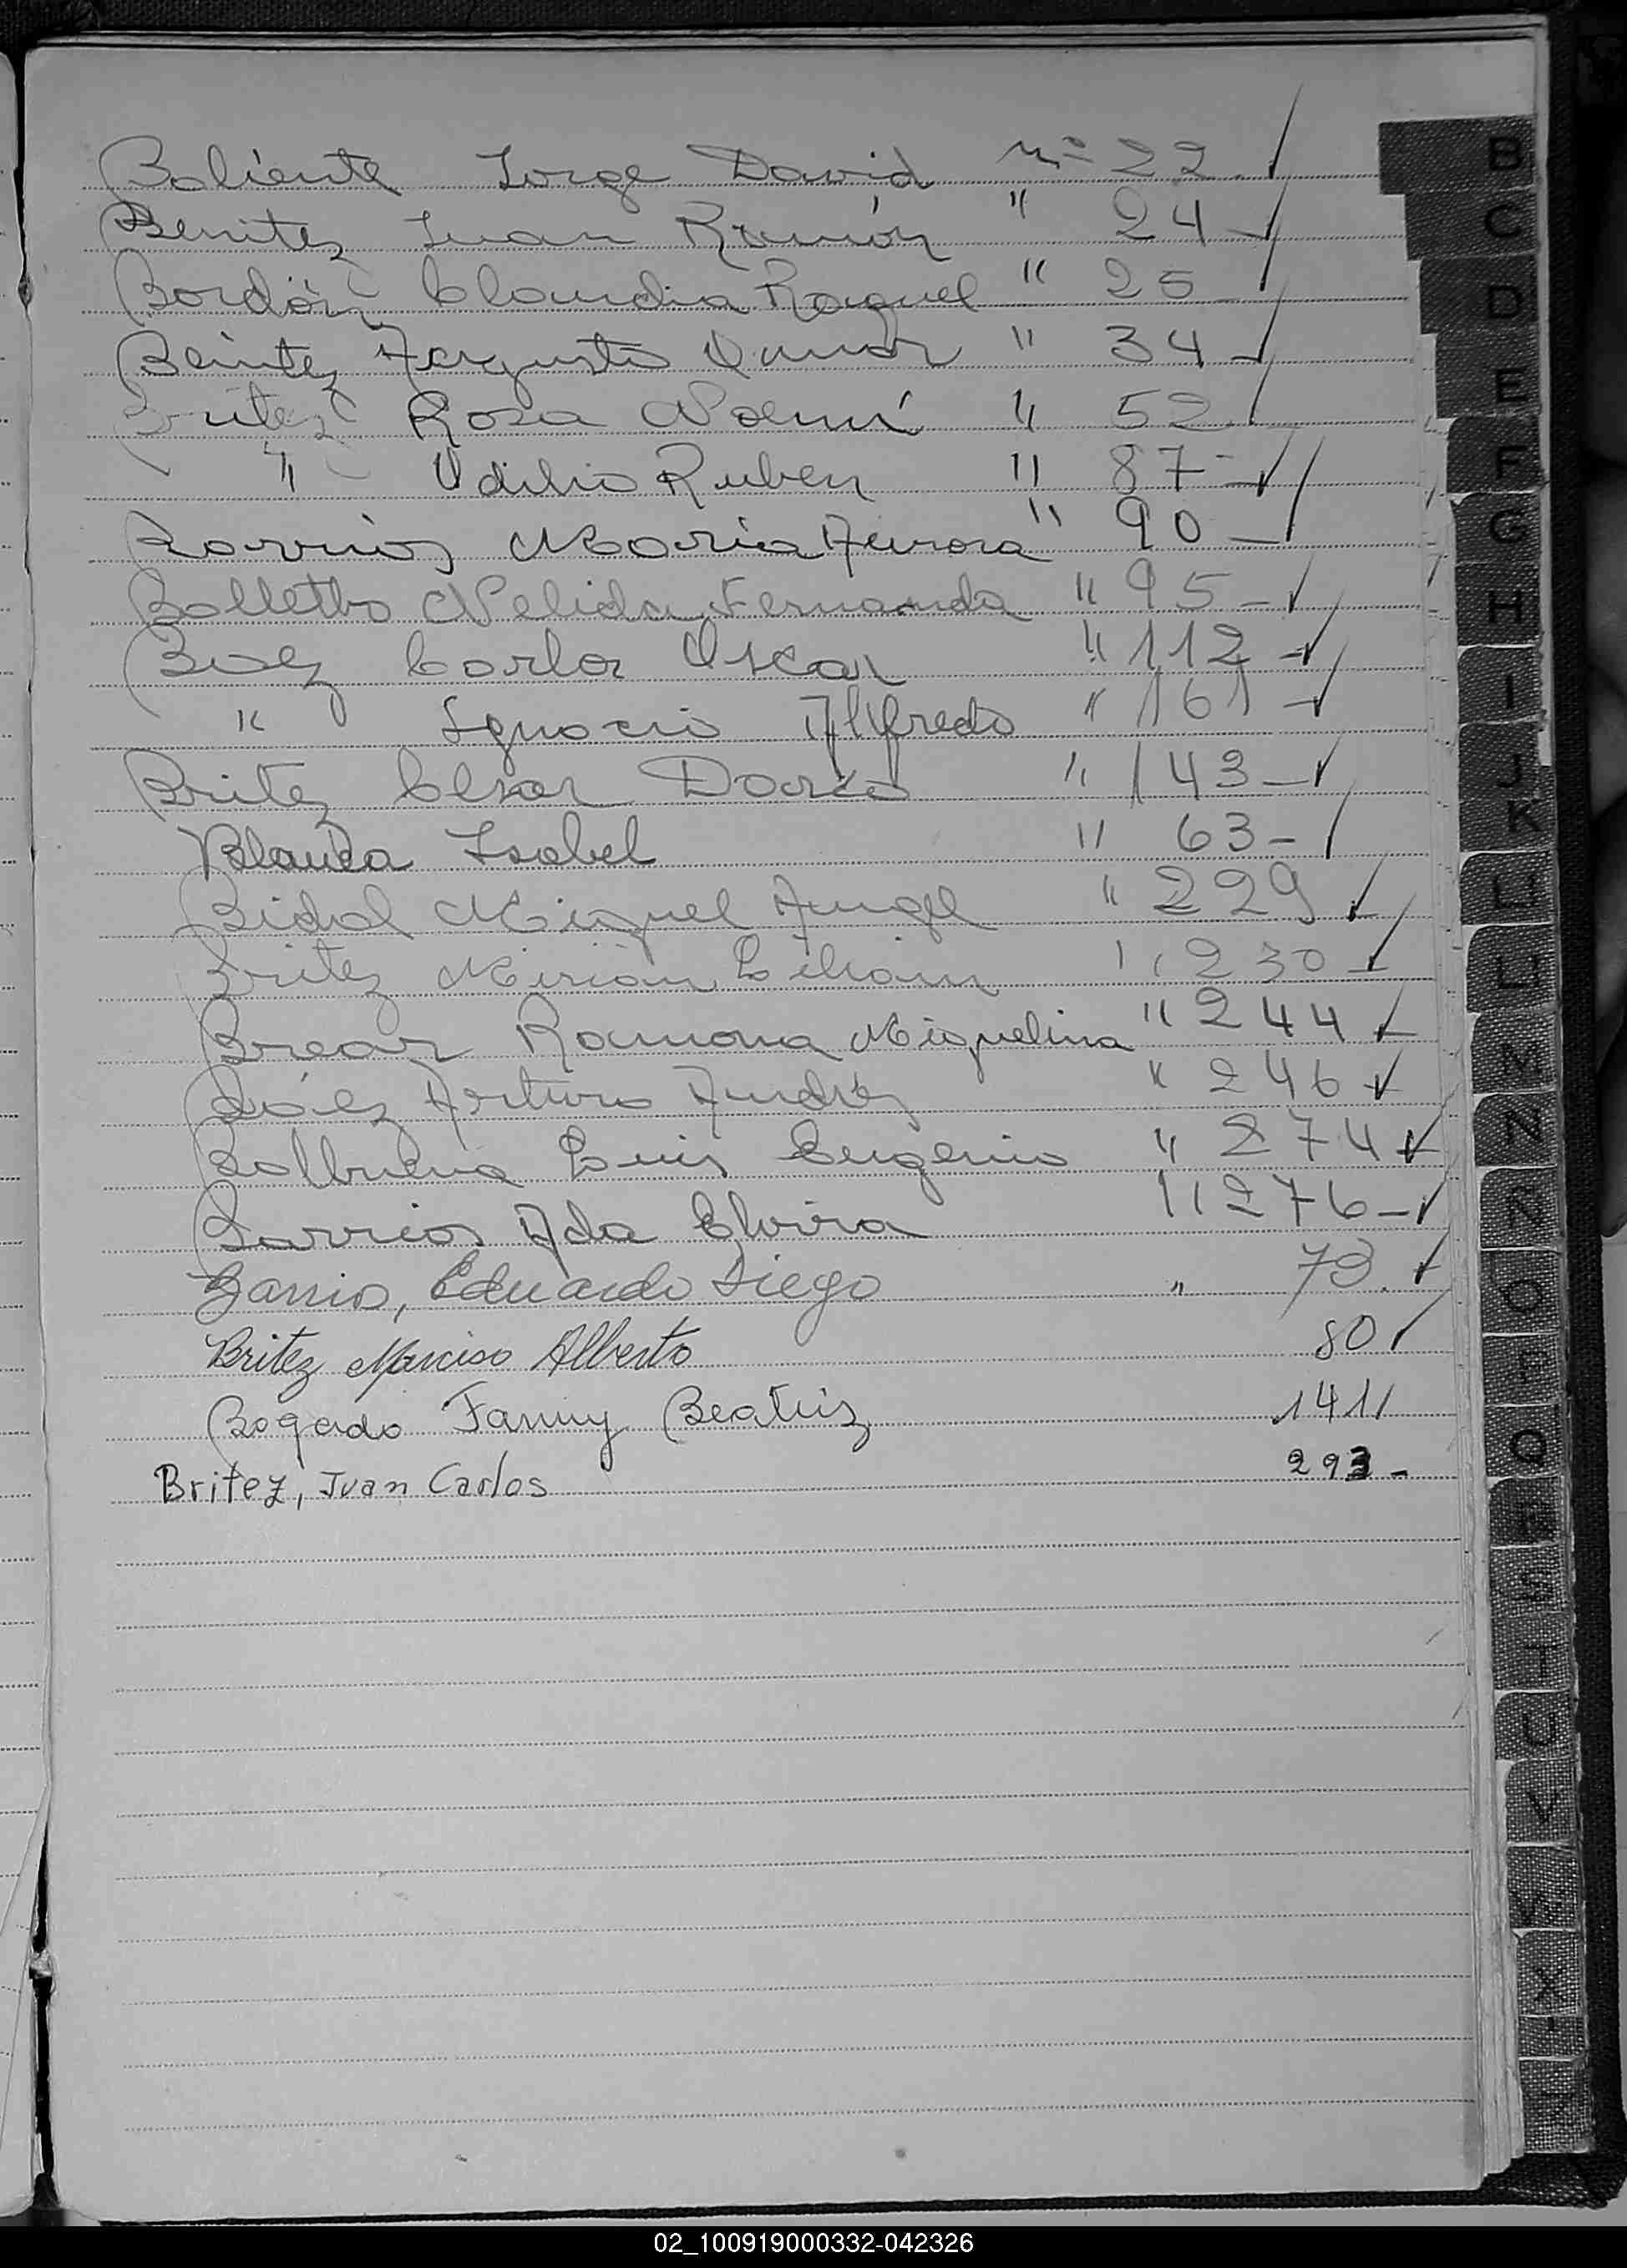 Baliente Jorge David Nº 22
Benitez Juan Ramón " 24
Bordón Claudia Raquel " 25
Beintez Augusto Omar " 34
Britez Rosa Noemí " 52
" Odilio Ruben " 87
Barrios María Aurora " 90
Nelida Fernanda " 95
Baez Carlos Oscar " 112
" Ignacio Alfredo " 161
Britez Cesar Dario " 143
Blanca Isabel " 63
Bidal Miguel Angel " 229
Britez Mirian Liliam " 230
Brear Ramona Miguelina " 244
Báez Arturo Andrés " 246
Balbuena Luis Eugenio " 274
Barrios Ada Elvira " 276
Barrios, Eduardo Diego " 73
Britez Narciso Alberto 80
Bogado Fanny Beatriz 141
Britez, Juan Carlos 293
B
C
D
E
F
G
H
I
J
K
L
Ll
M
N
Ñ
O
P
Q
R
S
T
U
V
X
02_100919000332-042326